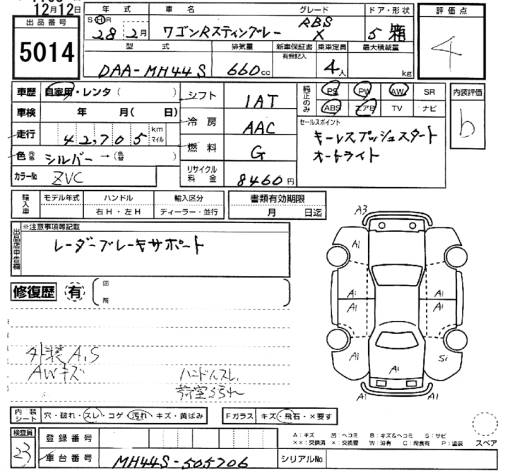 12月12日
出品番号
5014
年式 車名 グレード ドア・形状
S H R 28年2月 ワゴンRスティングレー RBS X 5 箱
型式 排気量 新車保証書 乗車定員 最大積載量
有無記入
DAA-MH44S 660cc 4人 kg
評価点
4
車歴 自家用・レンタ( )
車検 年 月( 日)
走行 42,705 km マイル
色 元色 シルバー → 色替( )
カラーNo ZVC
シフト 1AT
冷房 AAC
燃料 G
リサイクル料金 8460円
純正のみ
PS PW AW SR
ABS エアB TV ナビ
セールスポイント
キーレスプッシュスタート
オートライト
内装評価
b
輸入車 モデル年式 ハンドル 輸入区分 書類有効期限
右H・左H ディーラー・並行 月 日迄
※注意事項等記載
レーダーブレーキサポート
修復歴 有
外装A,S
AWキズ
内装シート 穴・破れ・スレ・コゲ・汚れ・キズ・黄ばみ
Fガラス キズ・飛石・×要す
検査員
23
登録番号
車台番号 MH44S-505706
シリアルNo
A3
A1
A1
A1
A1
A1
A1
A1
A1
S1
スペア